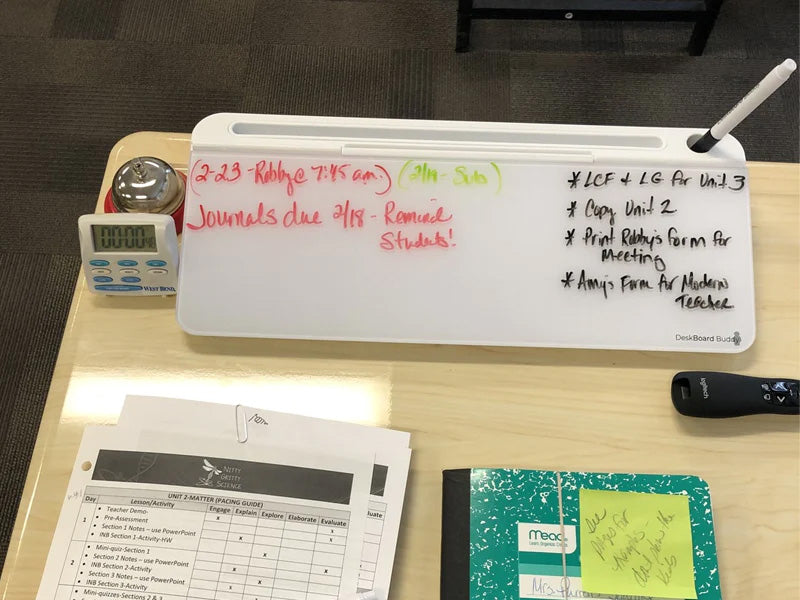 (2-23-Robby @ 7:45 a.m.) (2/19-Sub)
Journals due 2/18 - Remind
Students!
* LCF + LG for Unit 3
* Copy Unit 2
* Print Robby's Form for
Meeting
* Amy's Form for Modern
Teacher
DeskBoard Buddy
00:00
WEST BEND
logitech
NIFTY
GRITTY
SCIENCE
UNIT 2-MATTER (PACING GUIDE)
Day Lesson/Activity Engage Explain Explore Elaborate Evaluate
1
• Teacher Demo- x
• Pre-Assessment x x
• Section 1 Notes – use PowerPoint x
• INB Section 1-Activity-HW x
2
• Mini-quiz-Section 1 x
• Section 2 Notes – use PowerPoint x
• INB Section 2-Activity x
• Section 3 Notes – use PowerPoint x
• INB Section 3-Activity x
Mini-quizzes-Sections 2 & 3
Mead
Learn. Organize. Create.
Mrs.
for
the
kids